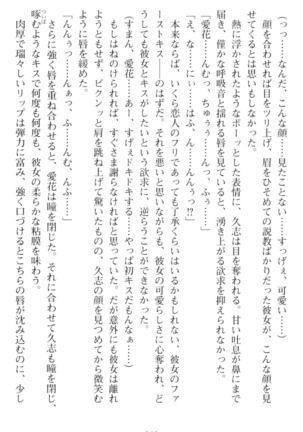 （つっ……なんだ、こんな顔……見たことない……すっげぇ、可愛い……）
顔を合わせれば目をツリ上げ、眉をひそめての説教ばかりだった彼女が、こんな顔を見
せてくるとは思いもしなかった。
熱に浮かされたようなポーッとした表情に、久志は目を奪われる。甘い吐息が鼻にまで
届き、僅かな呼吸音と揺れる唇を見ていると、湧き上がる欲求を抑えられず──。
「愛花……んむっ、ちゅううぅ……んっ、ふぅ……」
「え、な……にぃ……はふ、んん……んんぅっ!?」
本来ならば、いくら恋人のフリであっても了承くらいはいるかもしれない、彼女のファ
ーストキス──のはずだ。それを悪いと思いながらも、彼女の可愛らしさに心奪われ、ど
うしても彼女とキスがしたいという欲求に、逆らうことができない。
（すまん、愛花……あー、すげぇドキドキする……やっぱ初キスだもんなぁ……）
離れたら、すぐさま謝らなければと思っていた。だが意外にも彼女は離れ
ようともせず、ピクンッと肩を跳ね上げて驚いたものの、久志の顔を見つめてから微笑む
ように唇を緩める。
「んんぅっ……んぁっ、ふ……んむ、んふぅ……」
さらに強く唇を重ね合わせると、愛花は瞳を閉じた。それに合わせて久志も瞳を閉じ、
啄むようなキスで何度も何度も、彼女の柔らかな粘膜を味わう。
肉厚で瑞々しいリップは弾力に富み、強く口づけるとこちらの唇が沈み込むのに、少し